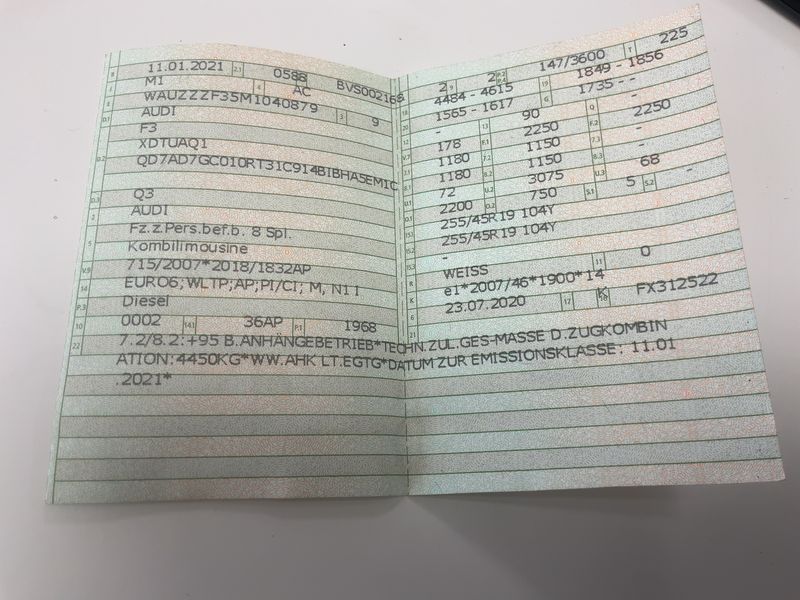 B 11.01.2021 2.1 0588 BVS002168
J M1 4 AC
E WAUZZZF35M1040879 3 9
D.1 AUDI
F3
D.2 XDTUAQ1
QD7AD7GC010RT31C914BIBHASEMIC
D.3 Q3
2 AUDI
5 Fz.z.Pers.bef.b. 8 Spl.
Kombilimousine
V.9 715/2007*2018/1832AP
14 EURO6;WLTP;AP;PI/CI; M, N1 I
P.3 Diesel
10 0002 14.1 36AP P.1 1968
22 7.2/8.2:+95 B.ANHÄNGEBETRIEB*TECHN.ZUL.GES-MASSE D.ZUGKOMBIN
ATION:4450KG*WW.AHK LT.EGTG*DATUM ZUR EMISSIONSKLASSE: 11.01
.2021*
2 9 2 P.2 P.4 147/3600 T 225
18 4484 - 4615 19 1849 - 1856
20 1565 - 1617 G 1735 - -
12 - 13 90 Q -
V.7 178 F.1 2250 F.2 2250
7.1 1180 7.2 1150 7.3 -
8.1 1180 8.2 1150 8.3 -
U.1 72 U.2 3075 U.3 68
O.1 2200 O.2 750 S.1 5 S.2 -
15.1 255/45R19 104Y
15.2 255/45R19 104Y
15.3 -
R WEISS 11 0
K e1*2007/46*1900*14
6 23.07.2020 17 K 16 FX312522
21